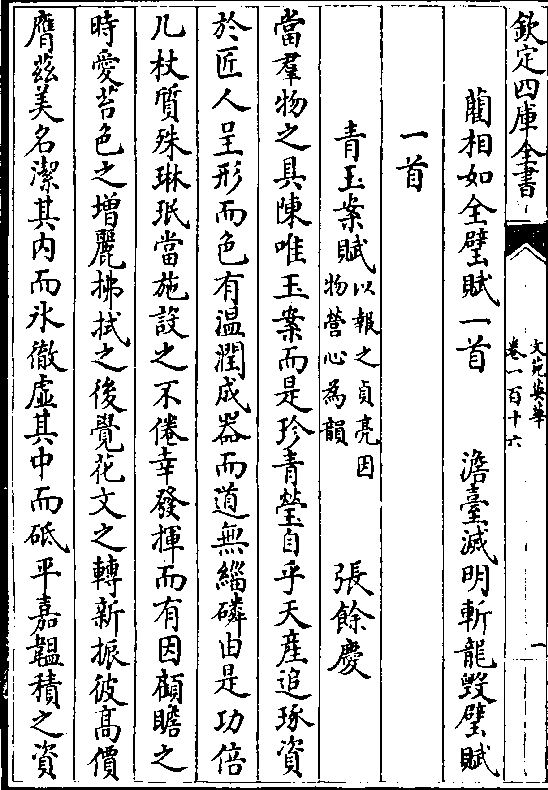 欽定四庫全書
文苑英華
卷一百十六
一
藺相如全璧賦一首 澹臺滅明斬龍毀璧賦
一首
青玉案賦 以報之貞亮因
物營心為韻 張餘慶
當羣物之具陳唯玉案而是珍青瑩自乎天産追琢資
於匠人呈形而色有温潤成器而道無緇磷由是功倍
几杖質殊琳珉當施設之不倦幸發揮而有因顧瞻之
時愛苔色之増麗拂拭之後覺花文之轉新振彼髙價
膺兹美名潔其内而氷徹虚其中而砥平嘉韞積之資